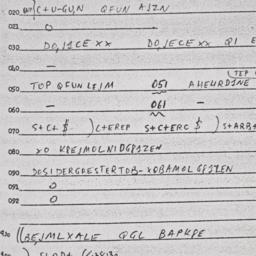 020 C+U-GUN QFUN AJZN
021 0
030 DO,JECE XX DO,JECE XX QI E
040 —
050 TOP QFUNLEJM 051 AHEURDINE
(TEP
060 — 061 —
070 S+C+$ )C+EREP S+C+ERC $ )S+ARB+
080 XO KPEJMOLNIDGPIZEN
090 DOSIDERGDESTERTOB-XQBAMOL GPIZEN
091 0
092 0
930 ((BE,MLXALE QGL BAPKPE